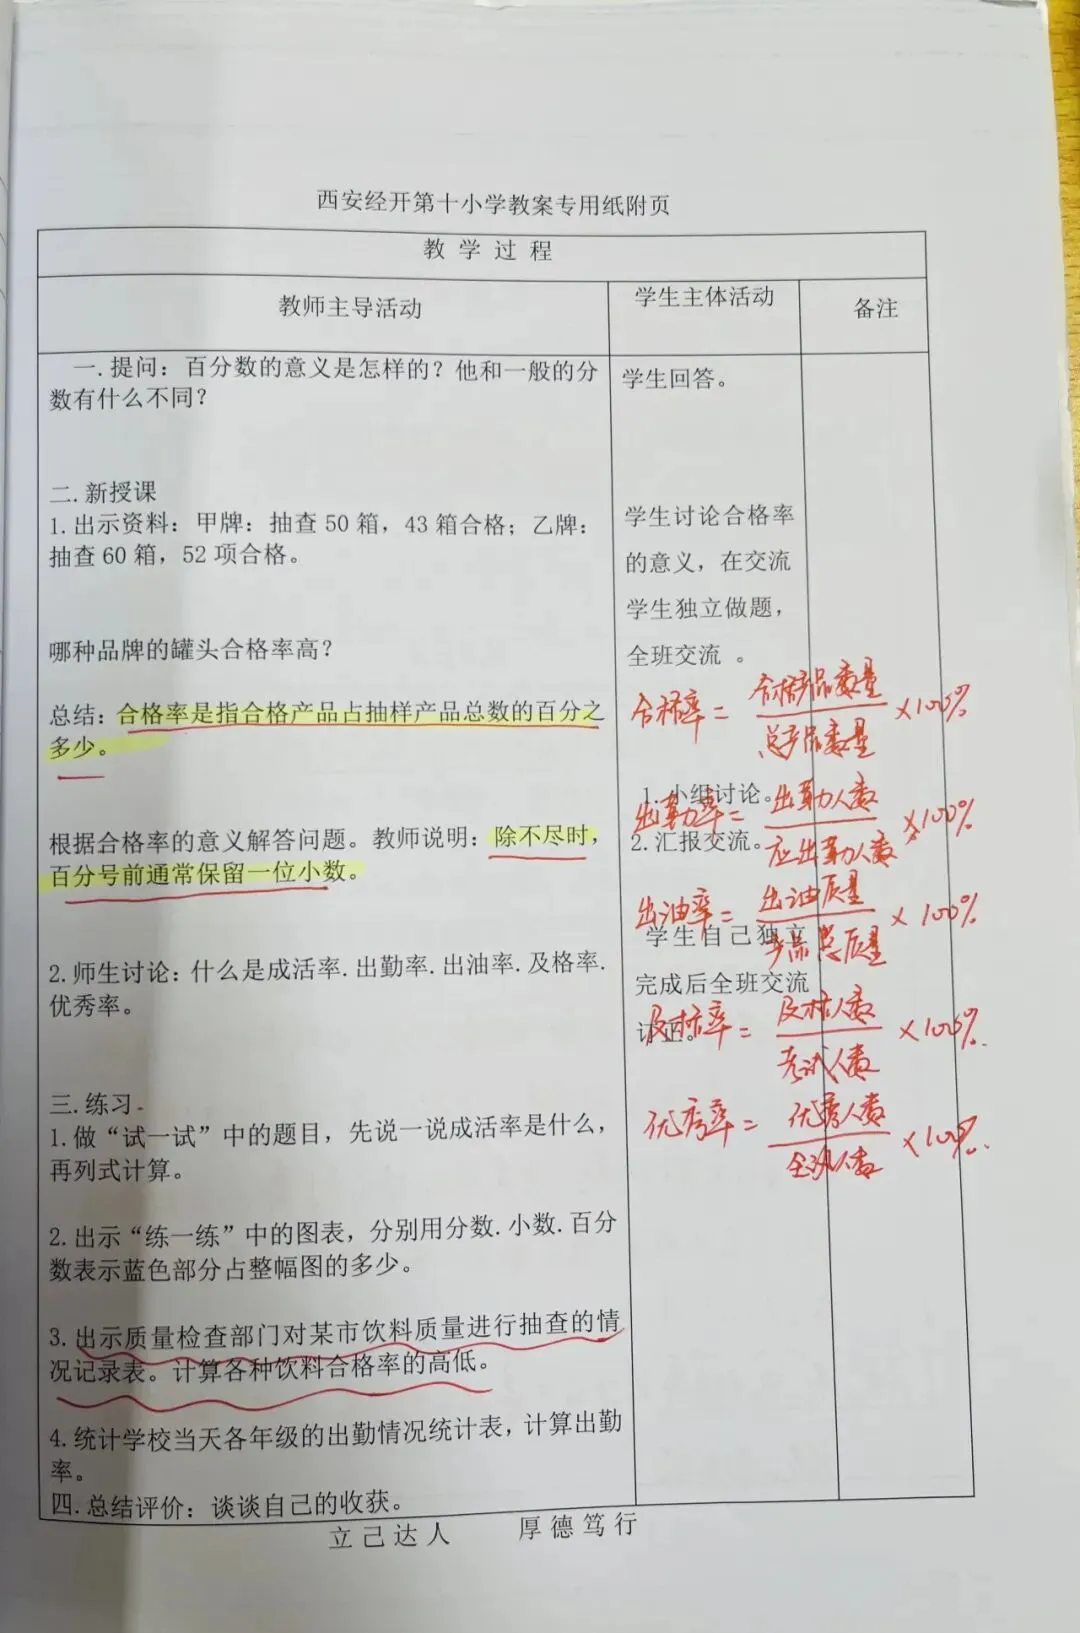 西安经开第十小学教案专用纸附页
教 学 过 程
教师主导活动
学生主体活动
备注
一.提问：百分数的意义是怎样的？他和一般的分
数有什么不同？
二.新授课
1.出示资料：甲牌：抽查50箱，43箱合格；乙牌：
抽查60箱，52项合格。
哪种品牌的罐头合格率高？
总结：合格率是指合格产品占抽样产品总数的百分之
多少。
根据合格率的意义解答问题。教师说明：除不尽时，
百分号前通常保留一位小数。
2.师生讨论：什么是成活率.出勤率.出油率.及格率.
优秀率。
三.练习.
1.做“试一试”中的题目，先说一说成活率是什么，
再列式计算。
2.出示“练一练”中的图表，分别用分数.小数.百分
数表示蓝色部分占整幅图的多少。
3.出示质量检查部门对某市饮料质量进行抽查的情
况记录表。计算各种饮料合格率的高低。
4.统计学校当天各年级的出勤情况统计表，计算出勤
率。
四.总结评价：谈谈自己的收获。
学生回答。
学生讨论合格率
的意义，在交流
学生独立做题，
全班交流 。
合格率＝
合格产品数量
总产品数量
×100%
1.小组讨论。
2.汇报交流。
出勤率＝
出勤人数
应出勤人数
×100%
出油率＝
出油质量
总质量
×100%
学生自己独立
完成后全班交流
订正。
及格率＝
及格人数
考试人数
×100%
优秀率＝
优秀人数
全班人数
×100%
立己达人 厚德笃行